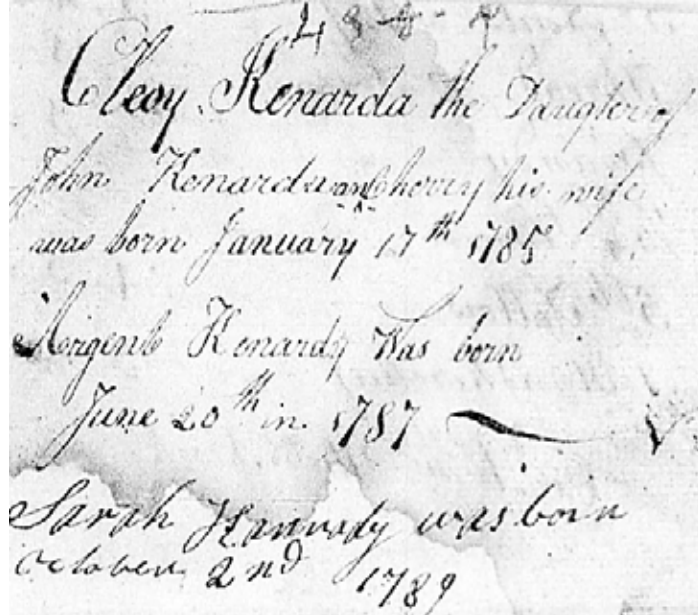 Cleoy Kenarda the Daugter of
John Kenarda an Chorry his wife
was born January 17th 1785
Kenardy Was born
June 20th in 1787
Sarah Kannady was born
October 2nd 1789